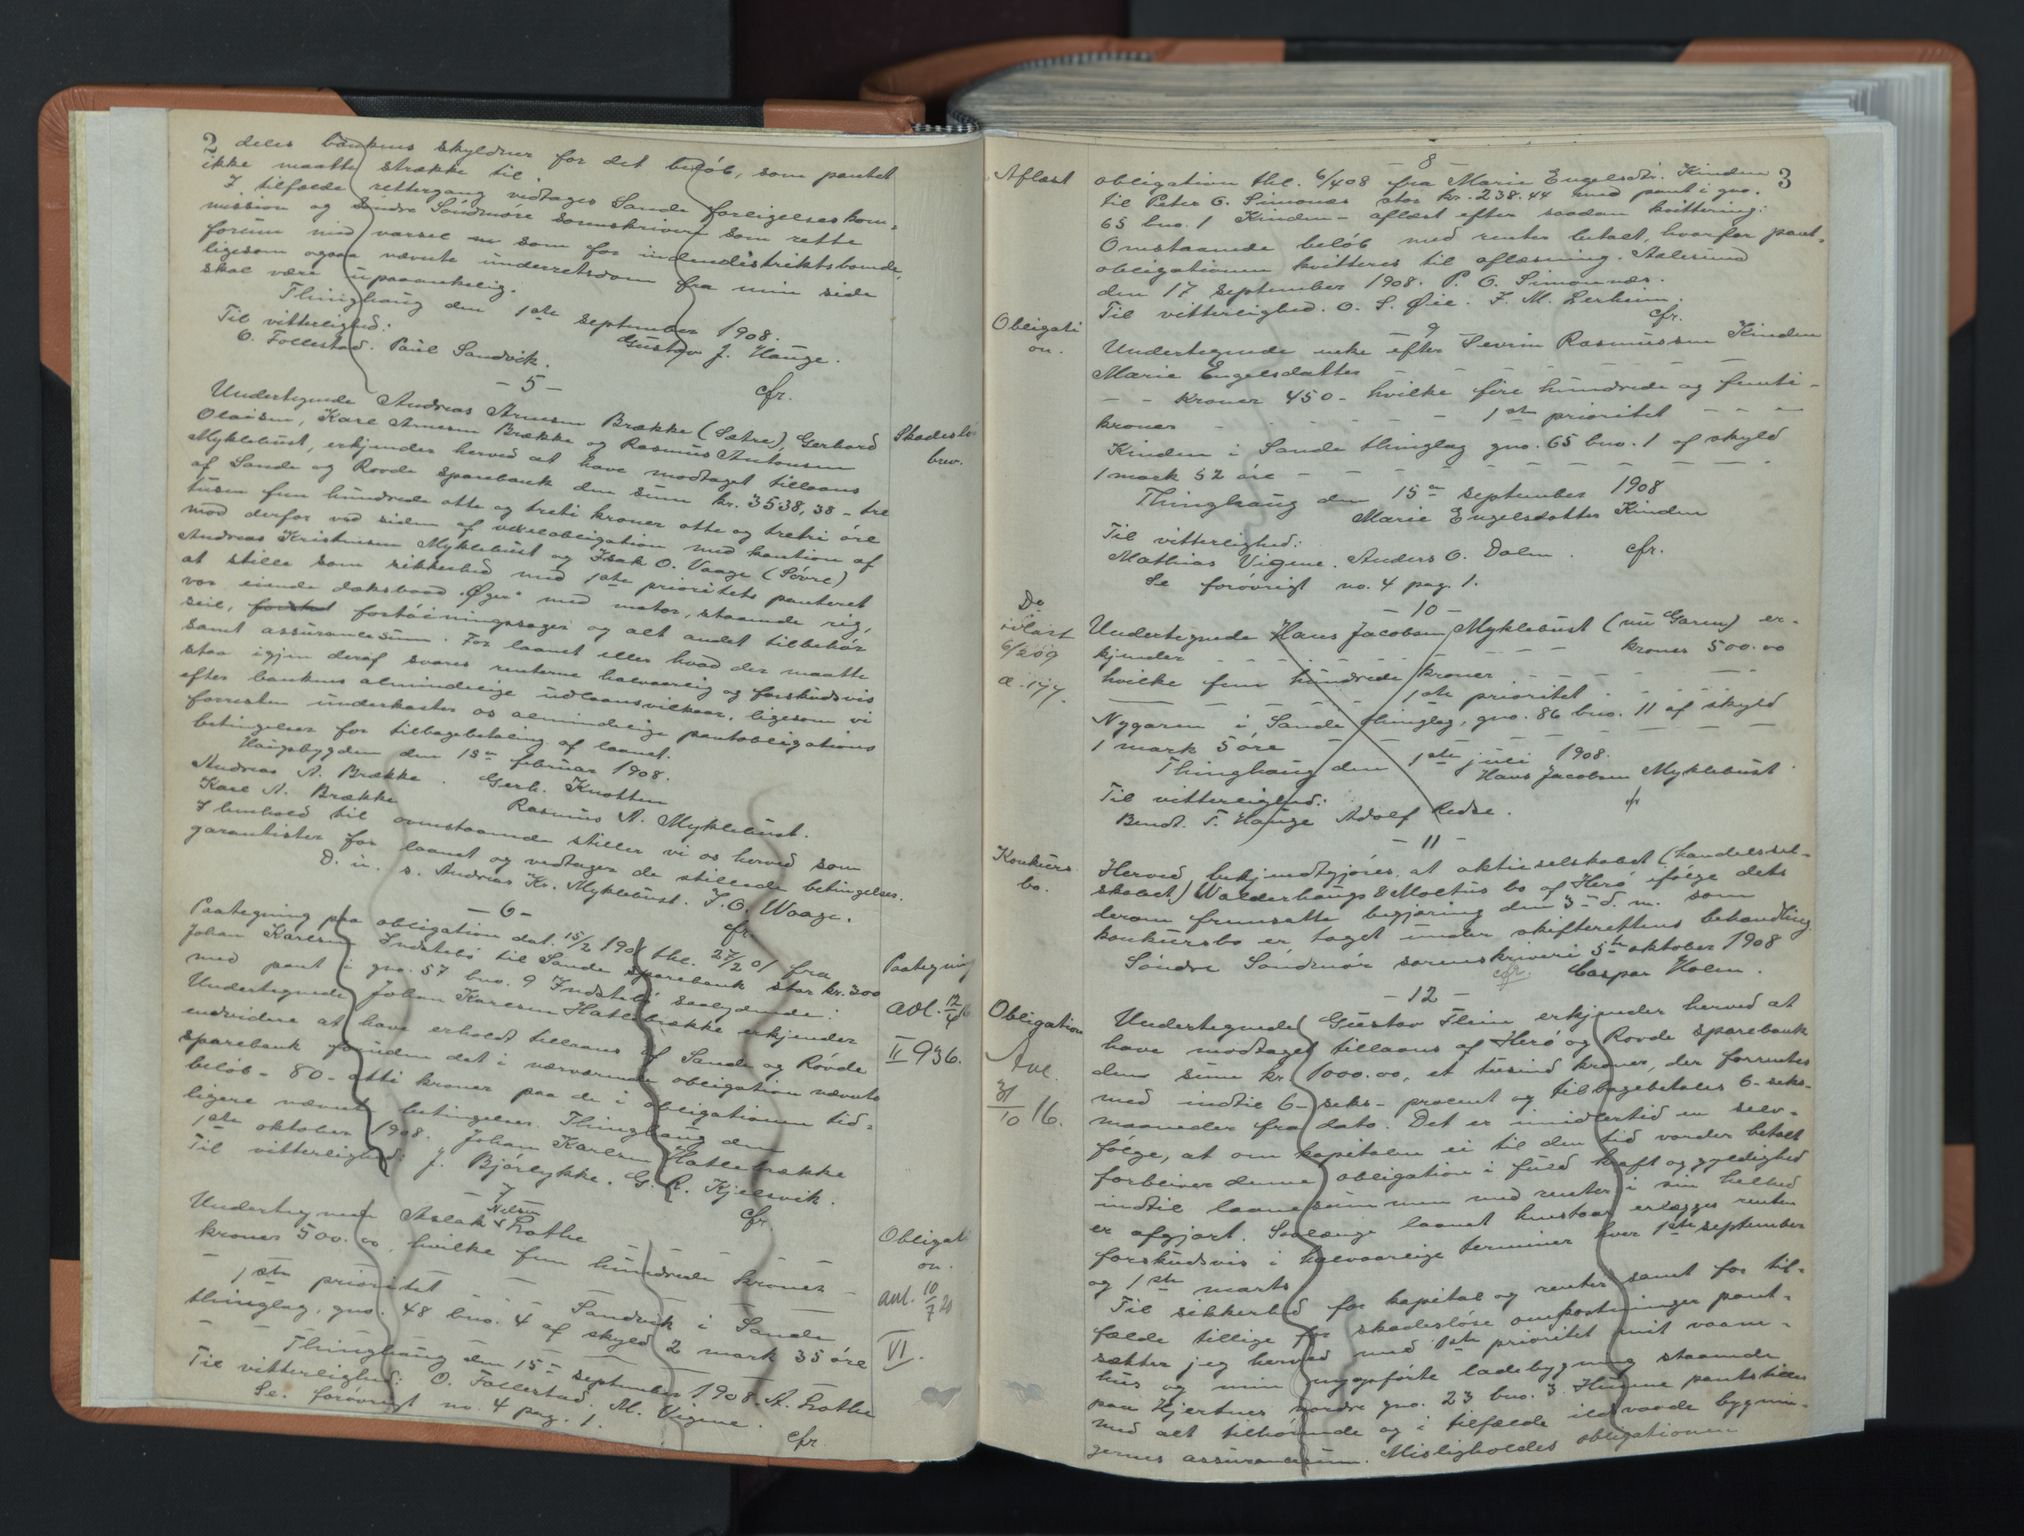 2
deles bankens skyldner for det beløb, som pantet
ikke maatte strække til.
I tilfælde rettergang vedtages Sande forligelseskom-
mission og søndre Søndmøre sorenskriveri som rette
forum med varsel som for indendistriktsboende,
ligesom ogsaa nævnte underretsdom fra min side
skal være upaaankelig.
Thinghaug den 1ste september 1908.
Til vitterlighed: Gustav J. Hauge.
O. Follestad. Paul Sandvik.
cfr.
- 5 -
Skadesløs
brev.
Undertegnede Andreas Arnesen Brække (Sætre), Gerhard
Olaisen, Karl Arnesen Brække og Rasmus Antonsen
Myklebust, erkjender herved at have modtaget tillaans
af Sande og Rovde sparebank den sum kr. 3538,38 - tre
tusen fem hundrede otte og treti kroner otte og tretri øre
mod derfor ved siden af vexelobligation med kaution af
Andreas Kristensen Myklebust og Isak O. Vaage (Søvre)
at stille som sikkerhed med 1ste prioritets panteret
vor eiende dæksbaad "Øger" med motor, staaende rig,
seil, fortøiningssager og alt andet tilbehør
samt assurancesum. For laanet eller hvad der maatte
staa igjen deraf svares renterne halvaarlig og forskudsvis
efter bankens almindelige udlaansvilkaar, ligesom vi
forresten underkaster os almindelige pantobligations
betingelser for tilbagebetaling af laanet.
Haugsbygden den 15de februar 1908.
Andreas A. Brække. Gerh. Knotten
Karl A. Brække Rasmus A. Myklebust.
I henhold til ovenstaaende stiller vi os herved som
garantister for laanet og vedtager de stillede betingelser.
D. u. s. Andreas Kr. Myklebust. I. O. Waage.
cfr.
- 6 -
Paategning
avl. 12/4 16
II 936.
Paategning paa obligation dat. 15/2 1901 thl. 27/2 01 fra
Johan Karlsen Indstebø til Sande sparebank stor kr. 300
med pant i gno. 57 bno. 9 Indstebø saalydende:
Undertegnede Johan Karlsen Hatlebrække erkjender
endvidere at have erholdt tillaans af Sande og Røvde
sparebank foruden det i nærværende obligation nævnte
beløb - 80 - otti kroner paa de i obligationen tid-
ligere nævnte betingelser. Thinghaug den
1ste oktober 1908. Johan Karlsen Hatlebrække
Til vitterlighed: J. Bjørlykke. G. R. Kjelsvik.
cfr.
- 7 -
Obligati
on.
avl. 10/7 20
VI.
Undertegnede Aslak Nilsen Lothe - - -
kroner 500.00, hvilke fem hundrede kroner -
- 1ste prioritet - - - Sandvik i Sande
thinglag, gno. 48 bno. 4 af skyld 2 mark 35 øre
- - Thinghaug den 15de september 1908. A. Lothe
Til vitterlighed: O. Follestad. M. Vigene.
Se forøvrigt no. 4 pag. 1.
cfr.
3
- 8 -
Aflæst
obligation thl. 6/4 08 fra Marie Engelsdtr. Kinden
til Peter O. Simonnæs stor kr. 238.44 med pant i gno.
65 bno. 1 Kinden - aflæst efter saadan kvittering:
Omstaaende beløb med renter betalt, hvorfor pant-
obligationen kvitteres til aflæsning. Aalesund
den 17 september 1908. P. O. Simonnæs.
Til vitterlighed. O. S. Øie. J. M. Lerheim.
cfr.
- 9 -
Obligati
on.
Undertegnede enke efter Sevrin Rasmussen Kinden
Marie Engelsdatter - - - - -
- - kroner 450 - hvilke fire hundrede og femti -
kroner - - - - - 1ste prioritet - - -
Kinden i Sande thinglag gno. 65 bno. 1 af skyld
1 mark 52 øre - - - - - - - -
Thinghaug den 15de september 1908
Marie Engelsdatter Kinden
Til vitterlighed:
Mathias Vigene. Anders O. Dalen. cfr.
Se forøvrigt no. 4 pag. 1.
- 10 -
Do
6/2 09
Undertegnede Hans Jacobsen Myklebust (nu Garen) er-
kjender - - - - - - kroner 500.00
hvilke fem hundrede kroner - - - -
- - - - 1ste prioritet - - -
Nygaren i Sande thinglag, gno. 86 bno. 11 af skyld
1 mark 5 øre - - - - - -
Thinghaug den 1ste juli 1908.
Hans Jacobsen Myklebust.
Til vitterlighed:
Bendt. T. Hauge Adolf Redse.
cfr
- 11 -
Konkurs
bo.
Herved bekjendtgjøres, at aktieselskabet (handelssel-
skabet) Walderhaug & Moltus bo af Herø ifølge dets
derom fremsatte begjæring den 3. d. m. som
konkursbo er taget under skifterettens behandling
Søndre Søndmør sorenskriveri 5te oktober 1908
cfr. Caspar Holm.
- 12 -
Obligation
Avl.
31/10 16.
Undertegnede Gustav Flem erkjender herved at
have modtaget tillaans af Herø og Rovde sparebank
den sum kr. 1000.00, et tusind kroner, der forrentes
med indtil 6 - seks - procent og tilbagebetales 6 - seks -
maaneder fra dato. Det er imidlertid en selv-
følge, at om kapitalen ei til den tid vorder betalt
forbliver denne obligation i fuld kraft og gyldighed
indtil laanesummen med renter i sin helhed
er afgjort. Saalænge laanet henstaar erlægges renten
forskudsvis i halvaarlige terminer hver 1ste september
og 1ste marts.
Til sikkerhed for kapital og renter samt for til-
fælde tillige for skadesløse omkostninger pant-
sætter jeg herved med 1ste prioritet mit vaane-
hus og min nyopførte ladebygning staaende
paa Hjertnes nordre gno. 23 bno. 3. Huvene pantstilles
med alt tilhørende og i tilfælde ildsvaade bygnin-
gernes assurancesum. Misligholdes obligationen